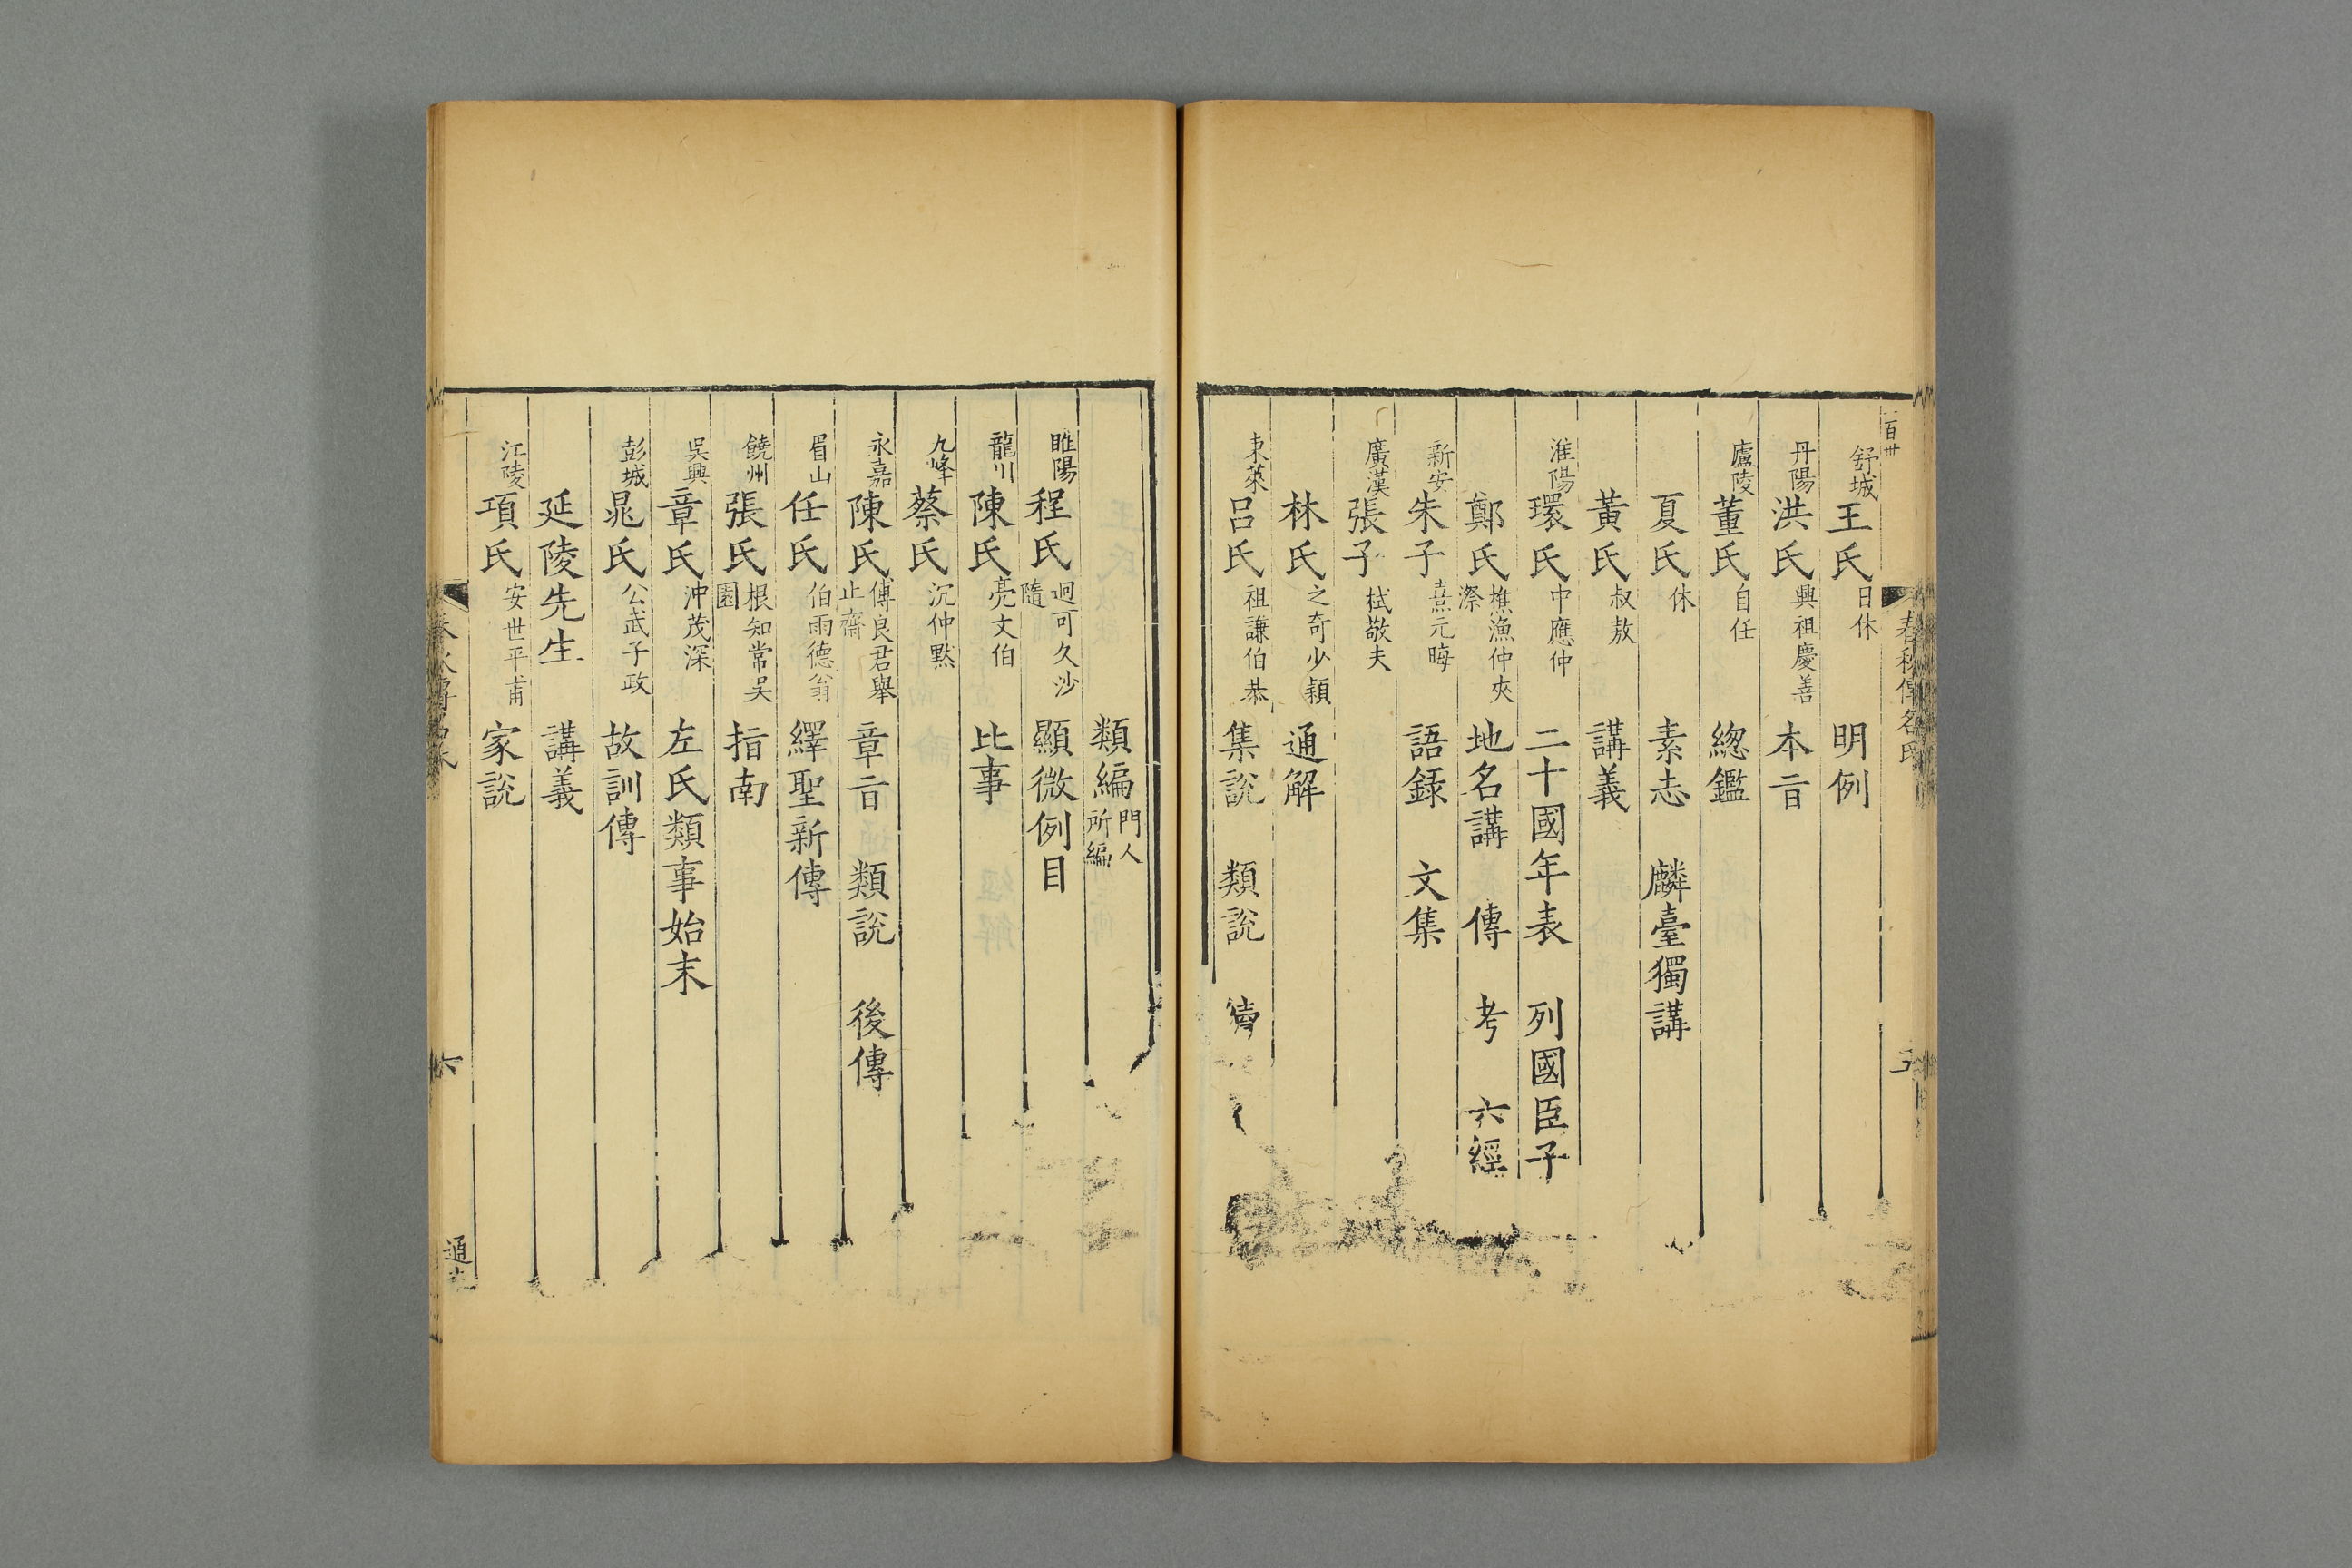 舒城王氏日休 明例
丹陽洪氏興祖慶善 本旨
廬陵董氏自任 緫鑑
夏氏休 素志 麟臺獨講
黃氏叔敖 講義
淮陽環氏中應仲 二十國年表 列國臣子
鄭氏樵漁仲夾漈 地名講 傳 考 六經
新安朱子熹元晦 語録 文集
廣漢張子栻敬夫
林氏之奇少穎 通解
東萊呂氏祖謙伯恭 集説 類説 續
類編門人所編
睢陽程氏迥可久沙隨 顯微例目
龍川陳氏亮文伯 比事
九峰蔡氏沉仲黙
永嘉陳氏傅良君舉止齋 章旨 類説 後傳
眉山任氏伯雨德翁 繹聖新傳
饒州張氏根知常吳園 指南
吳興章氏沖茂深 左氏類事始末
彭城晁氏公武子政 故訓傳
延陵先生 講義
江陵項氏安世平甫 家説
春秋傳名氏
六